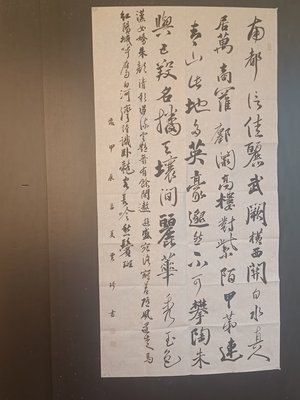 南都信佳麗武闕橫西關白水真人
居萬商羅鄽闠高樓對紫陌甲第連
青山此地多英豪邈然不可攀陶朱
與五羖名播天壤間麗華秀玉色
漢女嬌朱顏清歌遏流雲艷舞有餘閑遨遊盛宛洛冠蓋隨風還走馬
紅陽城呼鷹白河灣誰識臥龍客長吟愁鬢斑
歲甲辰孟夏書